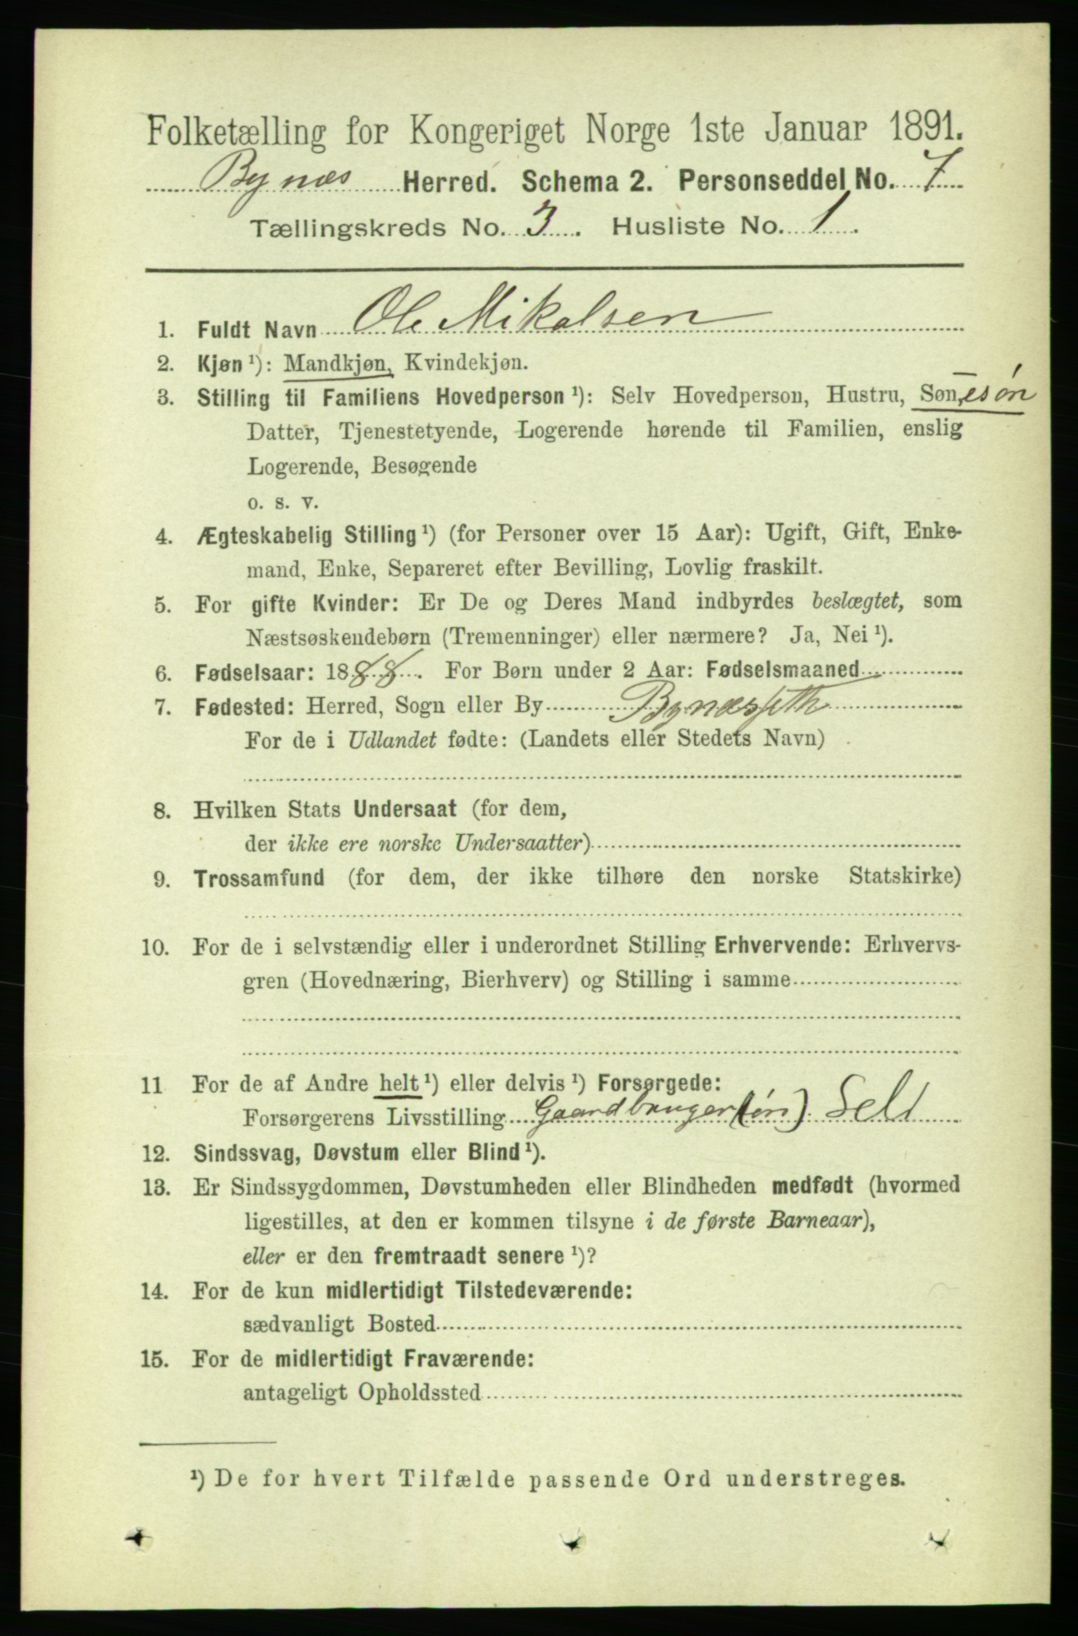 Folketælling for Kongeriget Norge 1ste Januar 1891.
Bynæs Herred. Schema 2. Personseddel No. 7
Tællingskreds No. 3. Husliste No. 1.
1. Fuldt Navn Ole Mikalsen
2. Kjøn ¹): Mandkjøn, Kvindekjøn.
3. Stilling til Familiens Hovedperson ¹): Selv Hovedperson, Hustru, Søn, esøn
Datter, Tjenestetyende, Logerende hørende til Familien, enslig
Logerende, Besøgende
o. s. v.
4. Ægteskabelig Stilling ¹) (for Personer over 15 Aar): Ugift, Gift, Enke-
mand, Enke, Separeret efter Bevilling, Lovlig fraskilt.
5. For gifte Kvinder: Er De og Deres Mand indbyrdes beslægtet, som
Næstsøskendebørn (Tremenninger) eller nærmere? Ja, Nei ¹).
6. Fødselsaar: 1888. For Børn under 2 Aar: Fødselsmaaned
7. Fødested: Herred, Sogn eller By
For de i Udlandet fødte: (Landets eller Stedets Navn)
8. Hvilken Stats Undersaat (for dem,
der ikke ere norske Undersaatter)
9. Trossamfund (for dem, der ikke tilhøre den norske Statskirke)
10. For de i selvstændig eller i underordnet Stilling Erhvervende: Erhvervs-
gren (Hovednæring, Bierhverv) og Stilling i samme
11 For de af Andre helt ¹) eller delvis ¹) Forsørgede:
Forsørgerens Livsstilling Gaardbruger
12. Sindssvag, Døvstum eller Blind ¹).
13. Er Sindssygdommen, Døvstumheden eller Blindheden medfødt (hvormed
ligestilles, at den er kommen tilsyne i de første Barneaar),
eller er den fremtraadt senere ¹)?
14. For de kun midlertidigt Tilstedeværende:
sædvanligt Bosted
15. For de midlertidigt Fraværende:
antageligt Opholdssted
¹) De for hvert Tilfælde passende Ord understreges.